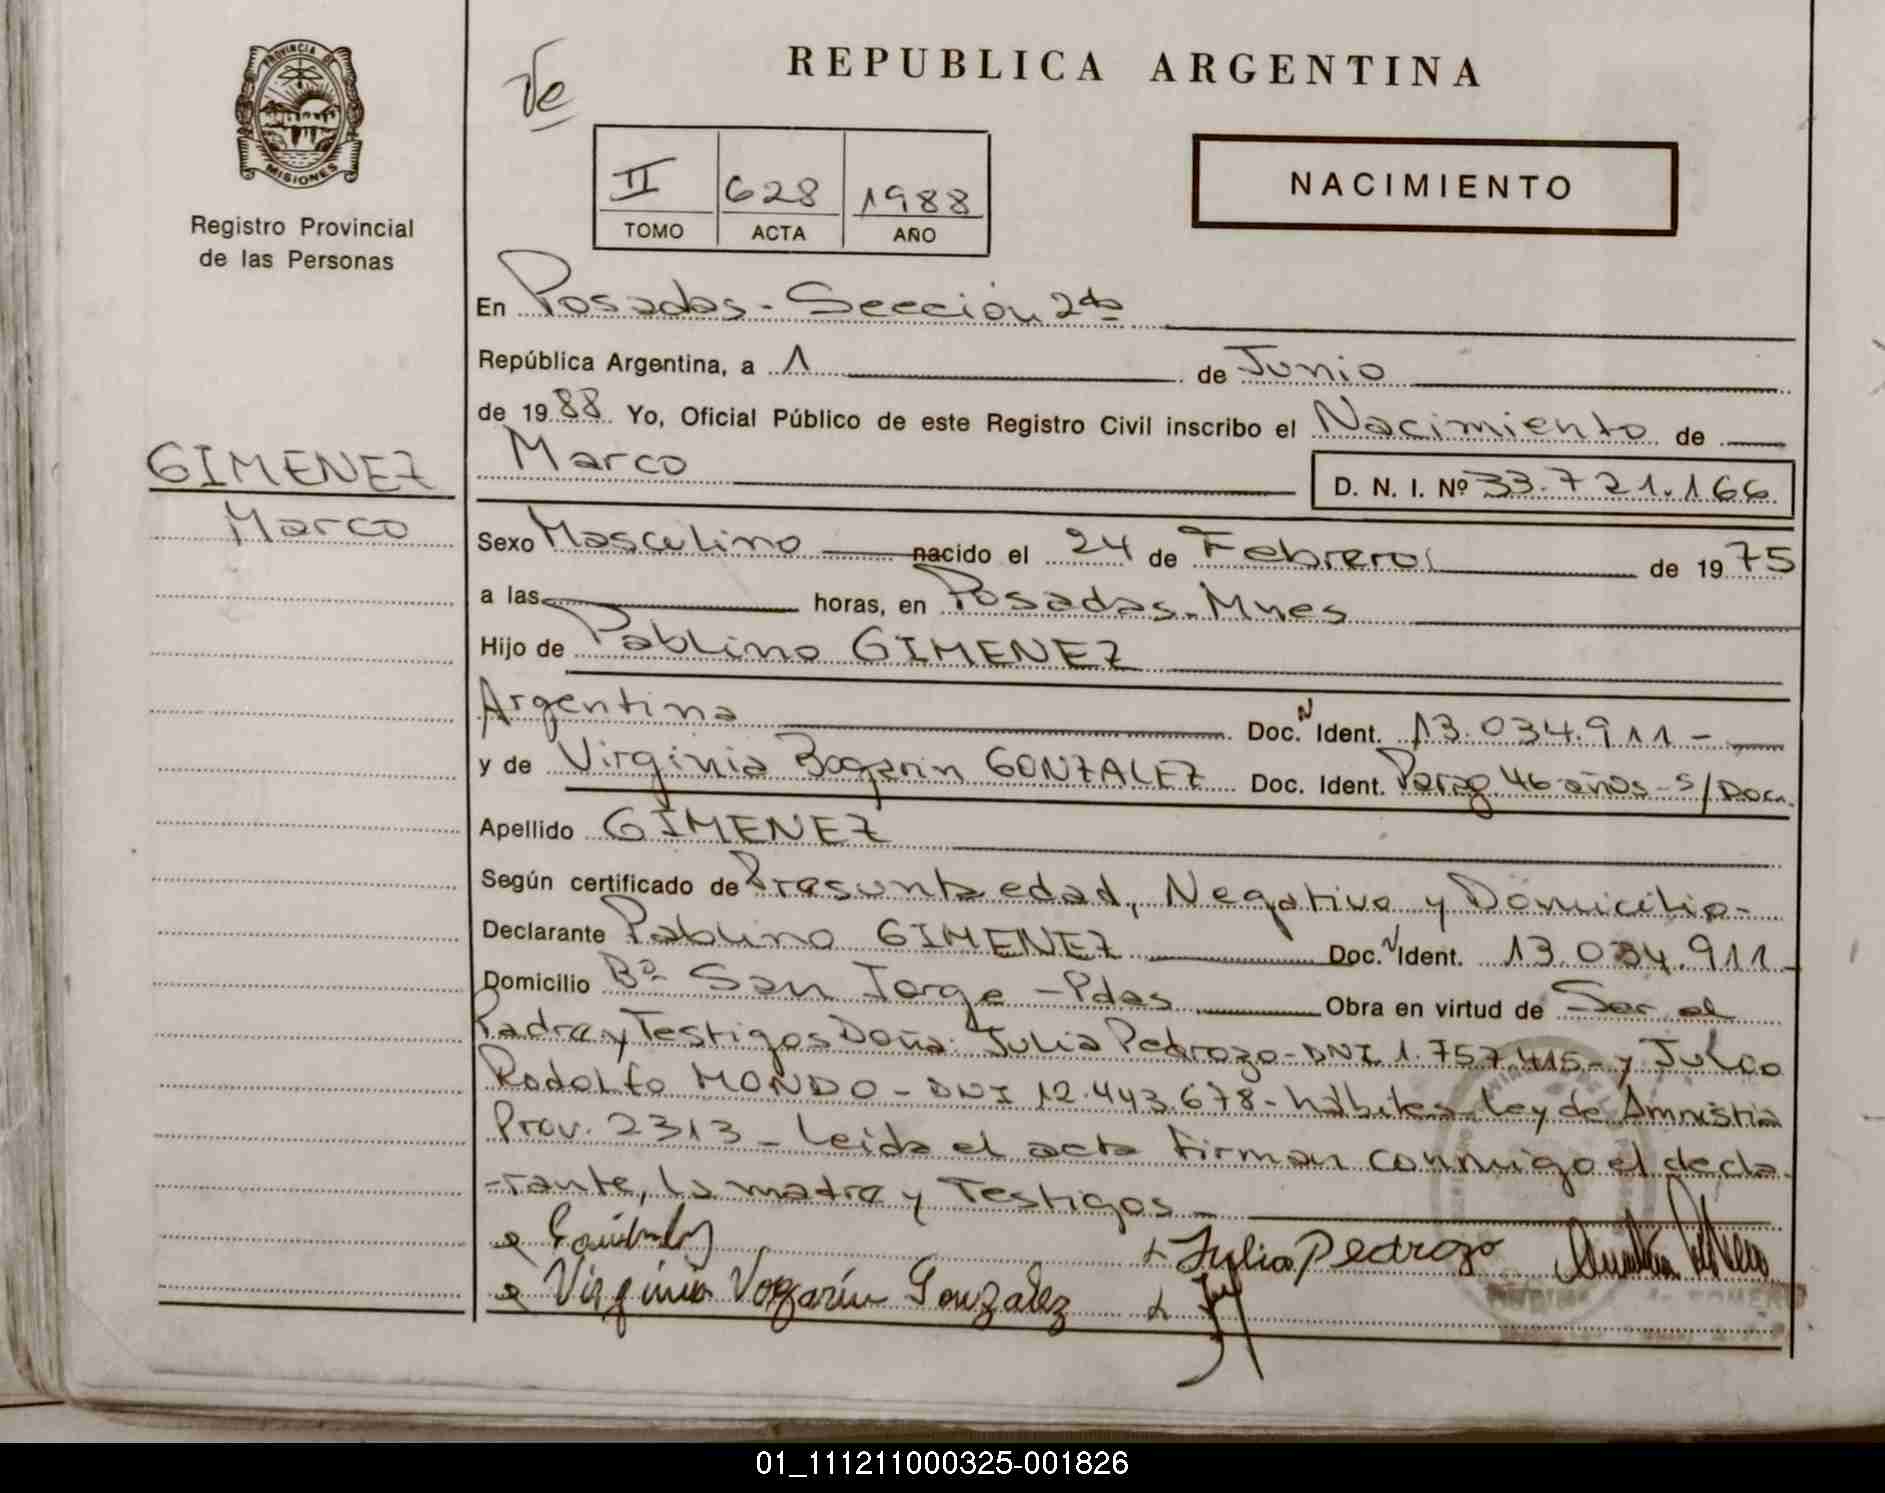 PROVINCIA DE
MISIONES
Registro Provincial
de las Personas
GIMENEZ
Marco
Ve
REPUBLICA ARGENTINA
II 628 1988
TOMO ACTA AÑO
NACIMIENTO
En Posadas - Sección 2da
República Argentina, a 1 de Junio
de 1988 Yo, Oficial Público de este Registro Civil inscribo el Nacimiento de
Marco D. N. I. Nº 33.721.166
Sexo Masculino nacido el 24 de Febrero de 1975
a las horas, en Posadas - Mnes
Hijo de Pablino GIMENEZ
Argentina Doc. N Ident. 13.034.911 -
y de Virginia Bogarin GONZALEZ Doc. Ident. Parag 46 años - s/ Docu.
Apellido GIMENEZ
Según certificado de Presunta edad, Negativo y Domicilio -
Declarante Pablino GIMENEZ Doc. N Ident. 13.034.911
Domicilio Bº San Jorge - Pdas Obra en virtud de Ser el
Padre y Testigos Doña Julia Pedrozo - DNI 1.757.415 - y Julio
Rodolfo MONDO - DNI 12.443.678 - hábiles - Ley de Amnistia
Prov. 2313 - Leida el acta firman conmigo el decla-
-rante, la madre y Testigos -
Julia Pedrozo
Virginia Vogarín Gonzalez
01_111211000325-001826